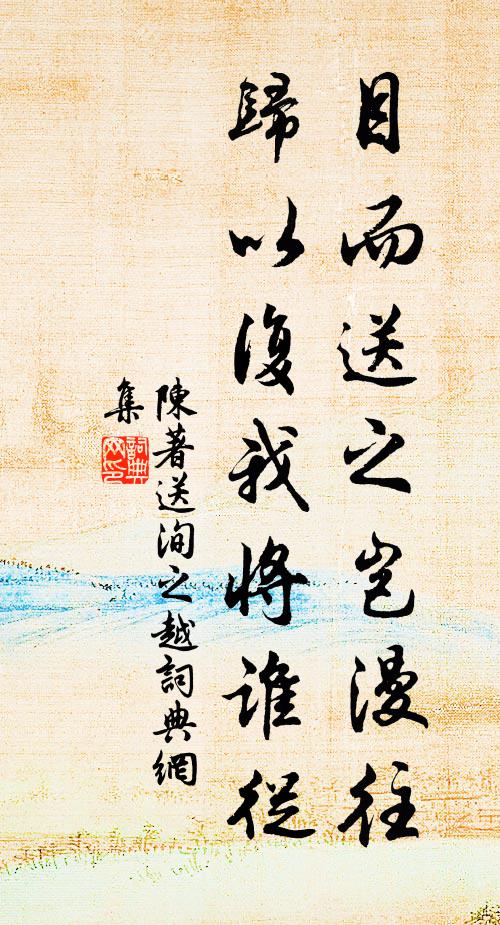 目而送之豈漫往
歸以復我將誰從
陳著送洵之越詞典網
集
詞典
网印